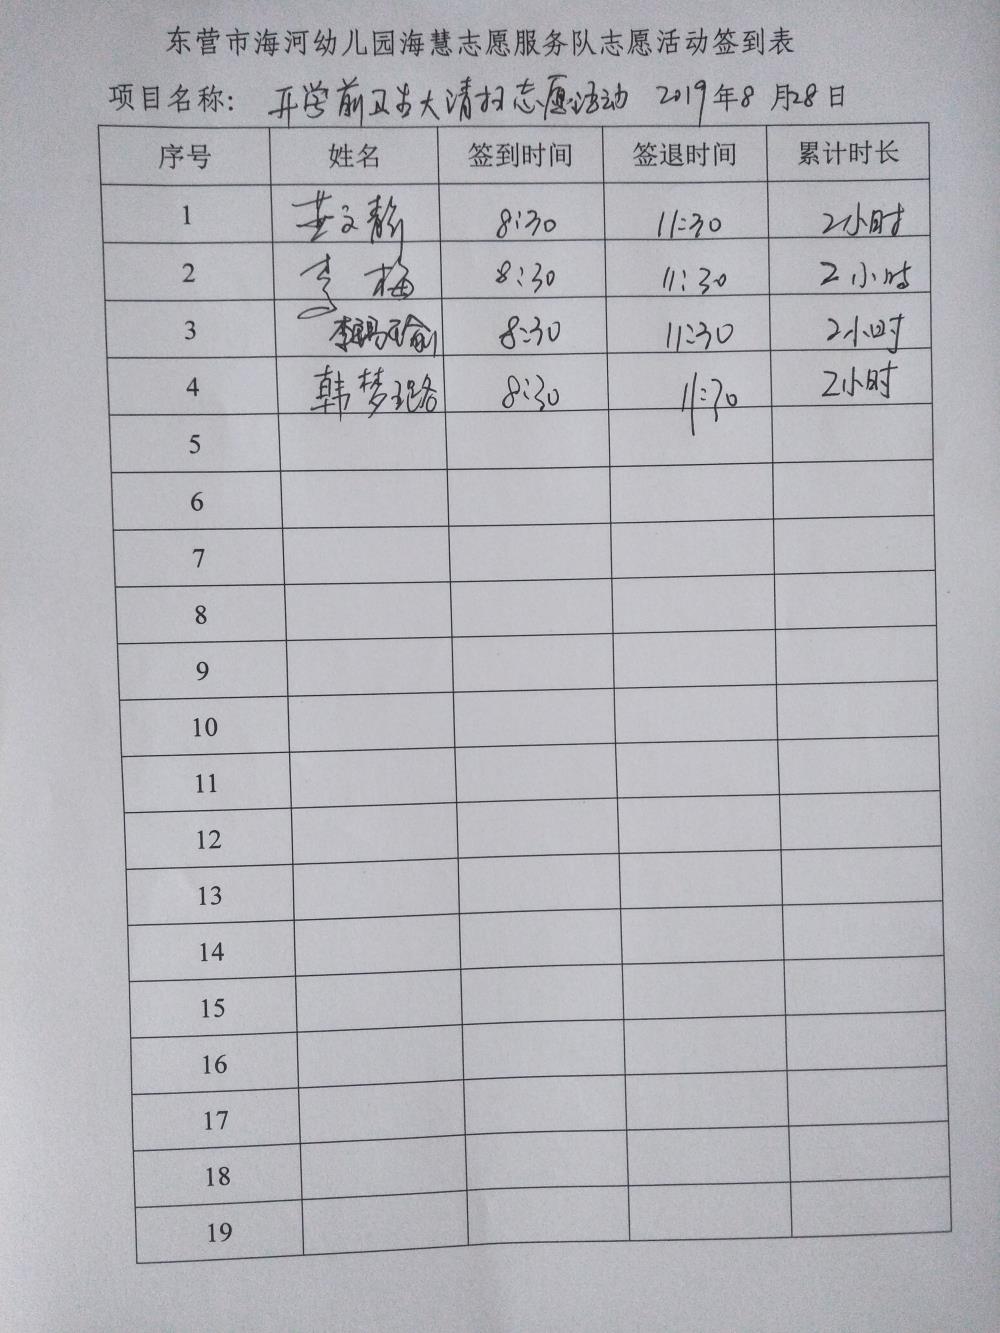 东营市海河幼儿园海慧志愿服务队志愿活动签到表
项目名称： 开学前卫生大清扫志愿活动 2019年8月28日
序号 姓名 签到时间 签退时间 累计时长
1 文静 8:30 11:30 2小时
2 李梅 8:30 11:30 2小时
3 李 瑜 8:30 11:30 2小时
4 韩梦璐 8:30 11:30 2小时
5
6
7
8
9
10
11
12
13
14
15
16
17
18
19